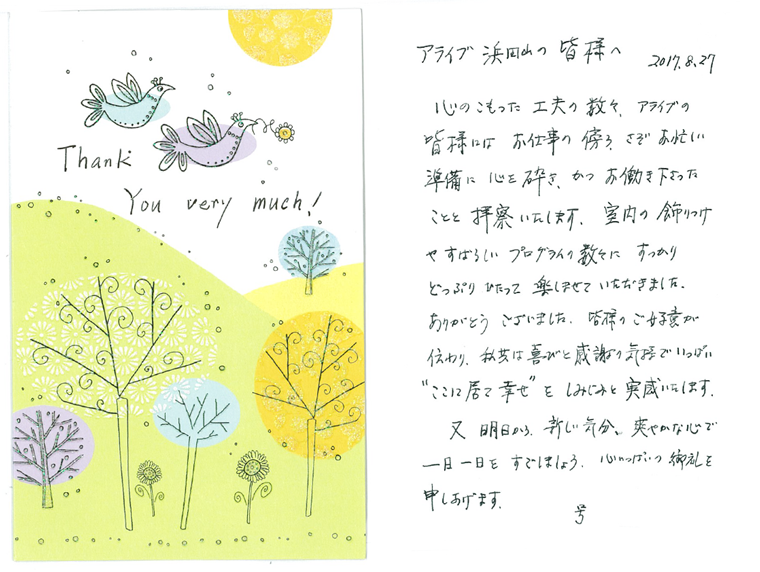 Thank
You very much!
アライブ 浜田山の 皆様へ
2017.8.27
心のこもった 工夫の数々、アライブの
皆様には お仕事の 傍ら さぞ お忙しい
準備に 心を 砕き、かつ お働き下さった
ことと 拝察いたします。室内の 飾りつけ
や すばらしい プログラムの 数々に すっかり
どっぷり ひたって 楽しませて いただきました。
ありがとう ございました。皆様の ご好意が
伝わり、私共は 喜びと 感謝の 気持でいっぱい
"ここに 居て 幸せ" を しみじみと 実感いたします。
又 明日から、新しい 気分、爽やかな 心で
一日一日を すごしましょう。心いっぱいの 御礼を
申しあげます。